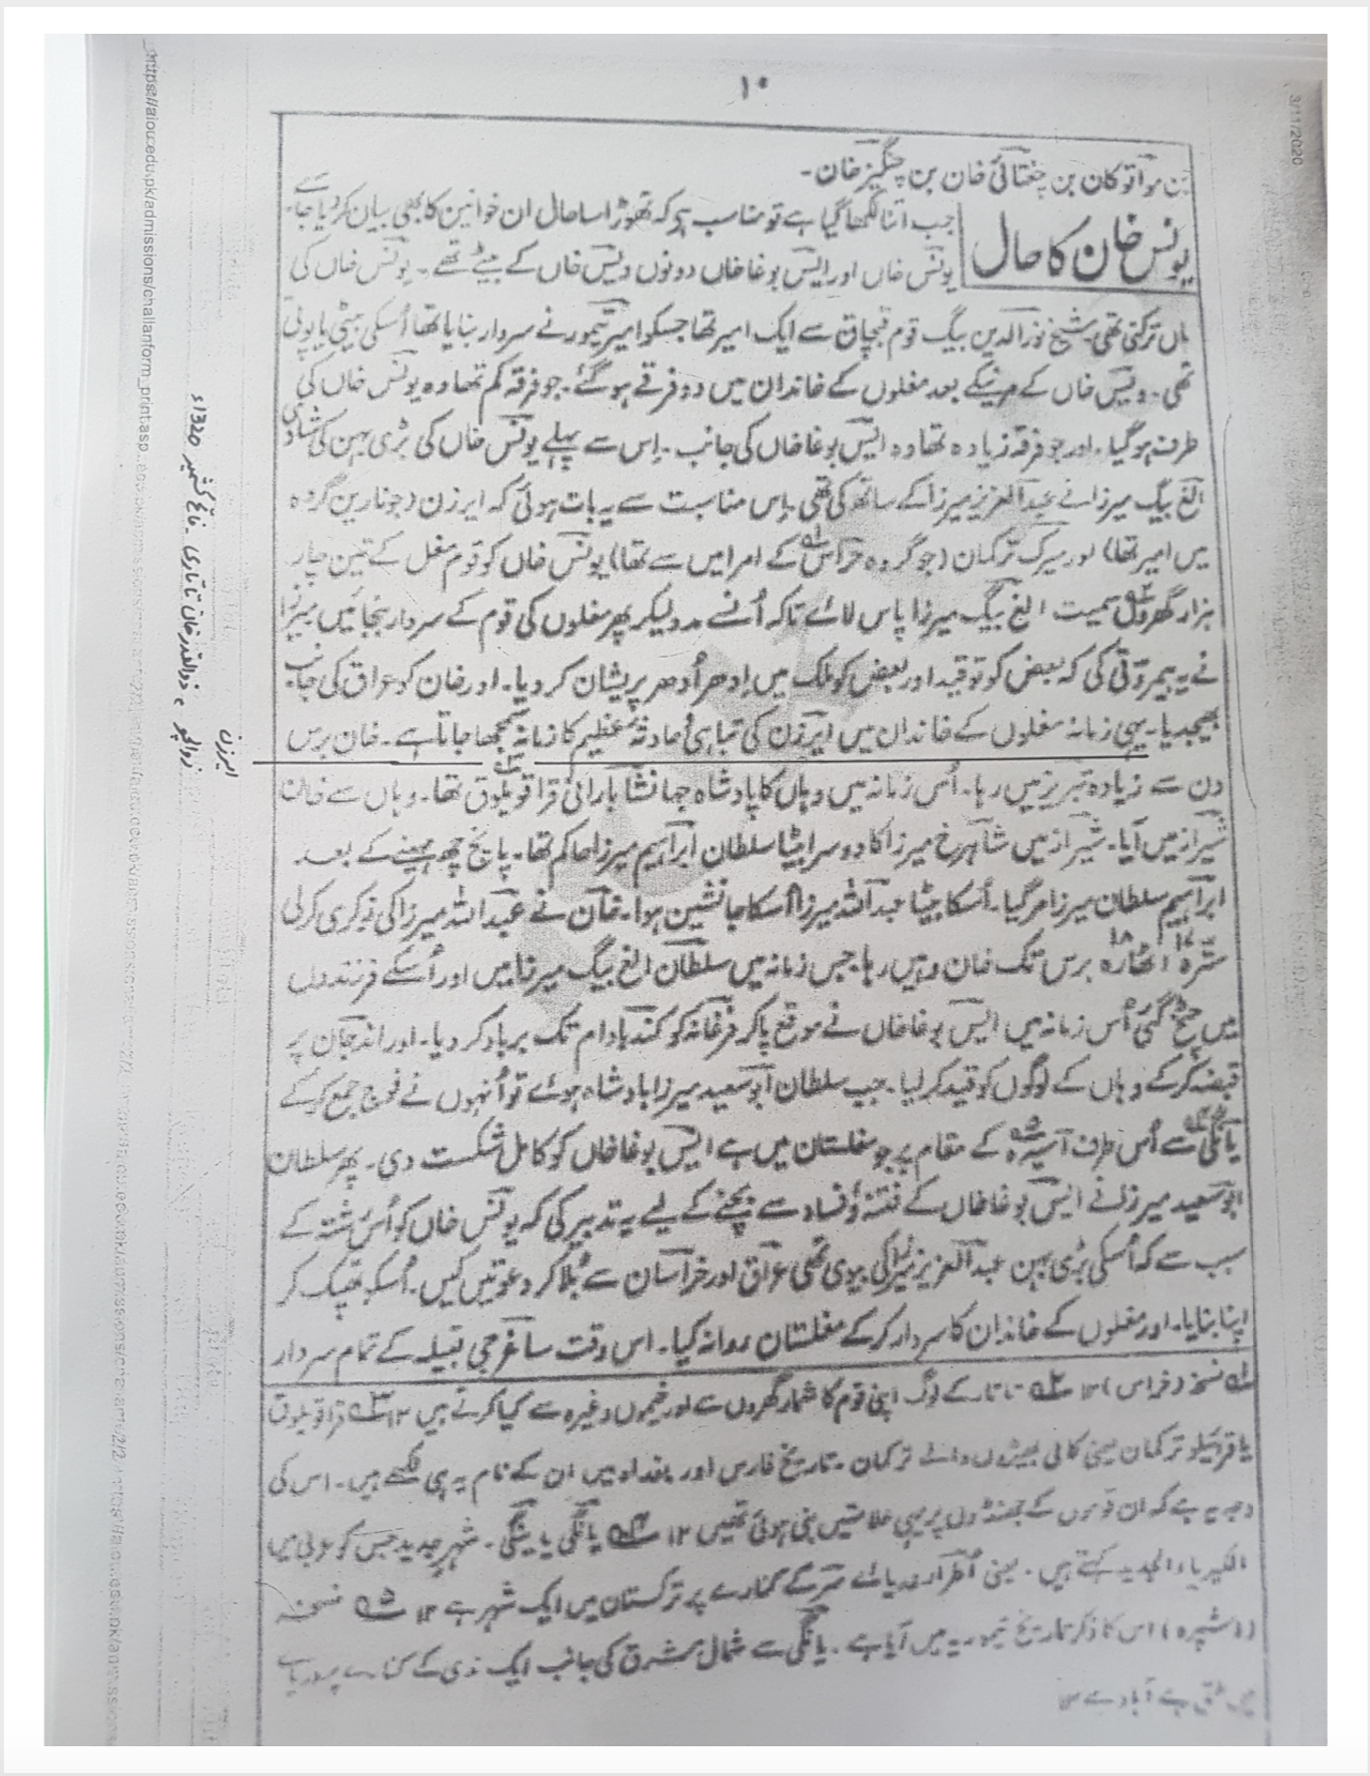 ۱۰
بن مواتوکان بن چغتائی خان بن چنگیز خان۔
یونس خان کا حال
جب اتنا لکھا گیا ہے تو مناسب ہے کہ تھوڑا سا حال ان خوانین کا بھی بیان کر دیا جائے
یونس خاں اور ایسن بوغا خاں دونوں ویس خاں کے بیٹے تھے۔ یونس خاں کی
ماں ترکنی تھی۔ شیخ نور الدین بیگ قوم قبچاق سے ایک امیر تھا جسکو امیر تیمور نے سردار بنایا تھا اُسکی بیٹی یا پوتی
تھی۔ ویس خاں کے مرنیکے بعد مغلوں کے خاندان میں دو فرقے ہو گئے۔ جو فرقہ کم تھا وہ یونس خاں کی
طرف ہو گیا۔ اور جو فرقہ زیادہ تھا وہ ایسن بوغا خاں کی جانب۔ اِس سے پہلے یونس خاں کی بڑی بہن کی شادی
الغ بیگ میرزا نے عبد العزیز میرزا کے ساتھ کی تھی۔ اِس مناسبت سے یہ بات ہوئی کہ ایرزن (جو نارین گروہ
میں امیر تھا) اور میرک ترکمان (جو گروہ خراس کے امرا میں سے تھا) یونس خاں کو قوم مغل کے تین چار
ہزار گھروں سمیت الغ بیگ میرزا پاس لائے تاکہ اُنسے مدد لیکر پھر مغلوں کی قوم کے سردار بنجائیں میرزا
نے یہ بیمروتی کی کہ بعض کو تو قید اور بعض کو ملک میں اِدھر اُدھر پریشان کر دیا۔ اور خان کو عراق کی جانب
بھیجدیا۔ یہی زمانہ مغلوں کے خاندان میں ایرزن کی تباہی حادثۂ عظیم کا زمانہ سمجھا جاتا ہے۔ خان برس
دن سے زیادہ تبریز میں رہا۔ اُس زمانہ میں وہاں کا پادشاہ جہانشا بارانی قراقویلوق تھا۔ وہاں سے خان
شیراز میں آیا۔ شیراز میں شاہرخ میرزا کا دوسرا بیٹا سلطان ابراہیم میرزا حاکم تھا۔ پانچ چھ مہینے کے بعد
ابراہیم سلطان میرزا مر گیا۔ اُسکا بیٹا عبد اللہ میرزا اُسکا جانشین ہوا۔ خان نے عبد اللہ میرزا کی نوکری کر لی
سترہ ۱۷ اٹھارہ ۱۸ برس تک خان وہیں رہا۔ جس زمانہ میں سلطان الغ بیگ میرزا میں اور اُسکے فرزندوں
میں چخ گئی اُس زمانہ میں ایسن بوغا خاں نے موقع پا کر فرغانہ کو کند بادام تک برباد کر دیا۔ اور اندجان پر
قبضہ کر کے وہاں کے لوگوں کو قید کر لیا۔ جب سلطان ابو سعید میرزا بادشاہ ہوئے تو اُنہوں نے فوج جمع کر کے
یانگی سے اُس طرف آسپرہ کے مقام پر جو مغلستان میں ہے ایسن بوغا خاں کو کامل شکست دی۔ پھر سلطان
ابو سعید میرزا نے ایسن بوغا خاں کے فتنہ و فساد سے بچنے کے لیے یہ تدبیر کی کہ یونس خاں کو اُس رشتہ کے
سبب سے کہ اُسکی بڑی بہن عبد العزیز میرزا کی بیوی تھی عراق اور خراسان سے بُلا کر دعوتیں کیں۔ اُسکو تھپک کر
اپنا بنایا۔ اور مغلوں کے خاندان کا سردار کر کے مغلستان روانہ کیا۔ اس وقت ساغرجی قبیلہ کے تمام سردار
۱ نسخہ (خراس) ۱۲ ۲ تاتار کے لوگ اپنی قوم کا شمار گھروں سے اور خیموں وغیرہ سے کیا کرتے ہیں ۱۲ ۳ قراقویلوق
یا قراقیلو ترکمان یعنی کالی بھیڑوں والے ترکمان۔ تاریخ فارس اور بغداد میں ان کے نام یہ ہی لکھے ہیں۔ اس کی
وجہ یہ ہے کہ ان قوموں کے جھنڈوں پر یہی علامتیں بنی ہوئی تھیں ۱۲ ۴ یانگی یا ینگی۔ شہر جدید جس کو عربی میں
الجدید کہتے ہیں۔ یعنی اُطرار دریائے سر کے کنارے پر ترکستان میں ایک شہر ہے ۱۲ ۵ نسخہ
اس کا ذکر تاریخ تیموریہ میں آیا ہے۔ یانگی سے شمال مشرق کی جانب ایک ندی کے کنارے پر
ہے آباد ہے ۱۲
ایرزن
زوالچو ، ذوالقدر خان تاتاری فاتح کشمیر 1320ء
https://aiou.edu.pk/admissions/challanform_print.asp
3/11/2020